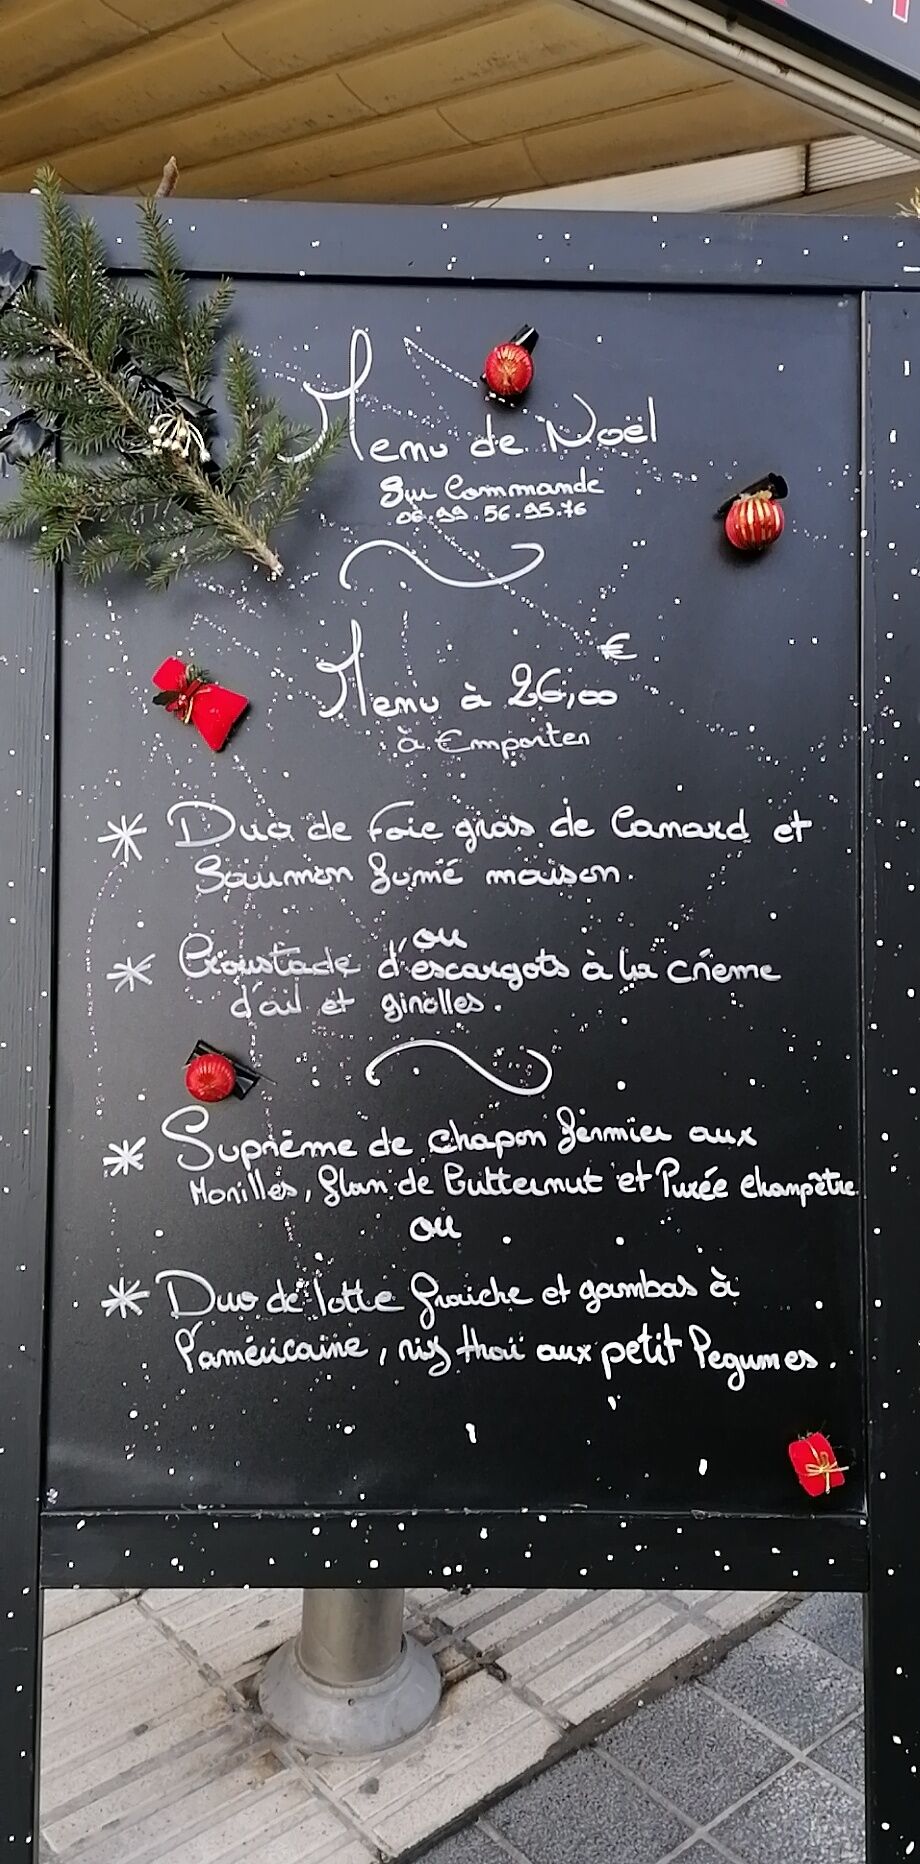 Menu de Noël
Sur Commande
06.99.56.95.76
Menu à 26,00€
à Emporter
* Duo de Foie gras de Canard et
Saumon fumé maison.
ou
* Croustade d'escargots à la crème
d'ail et girolles.
* Suprême de chapon fermier aux
Morilles, flan de Butternut et Purée Champêtre
ou
* Duo de lotte fraiche et gambas à
l'américaine, riz thaï aux petit legumes.